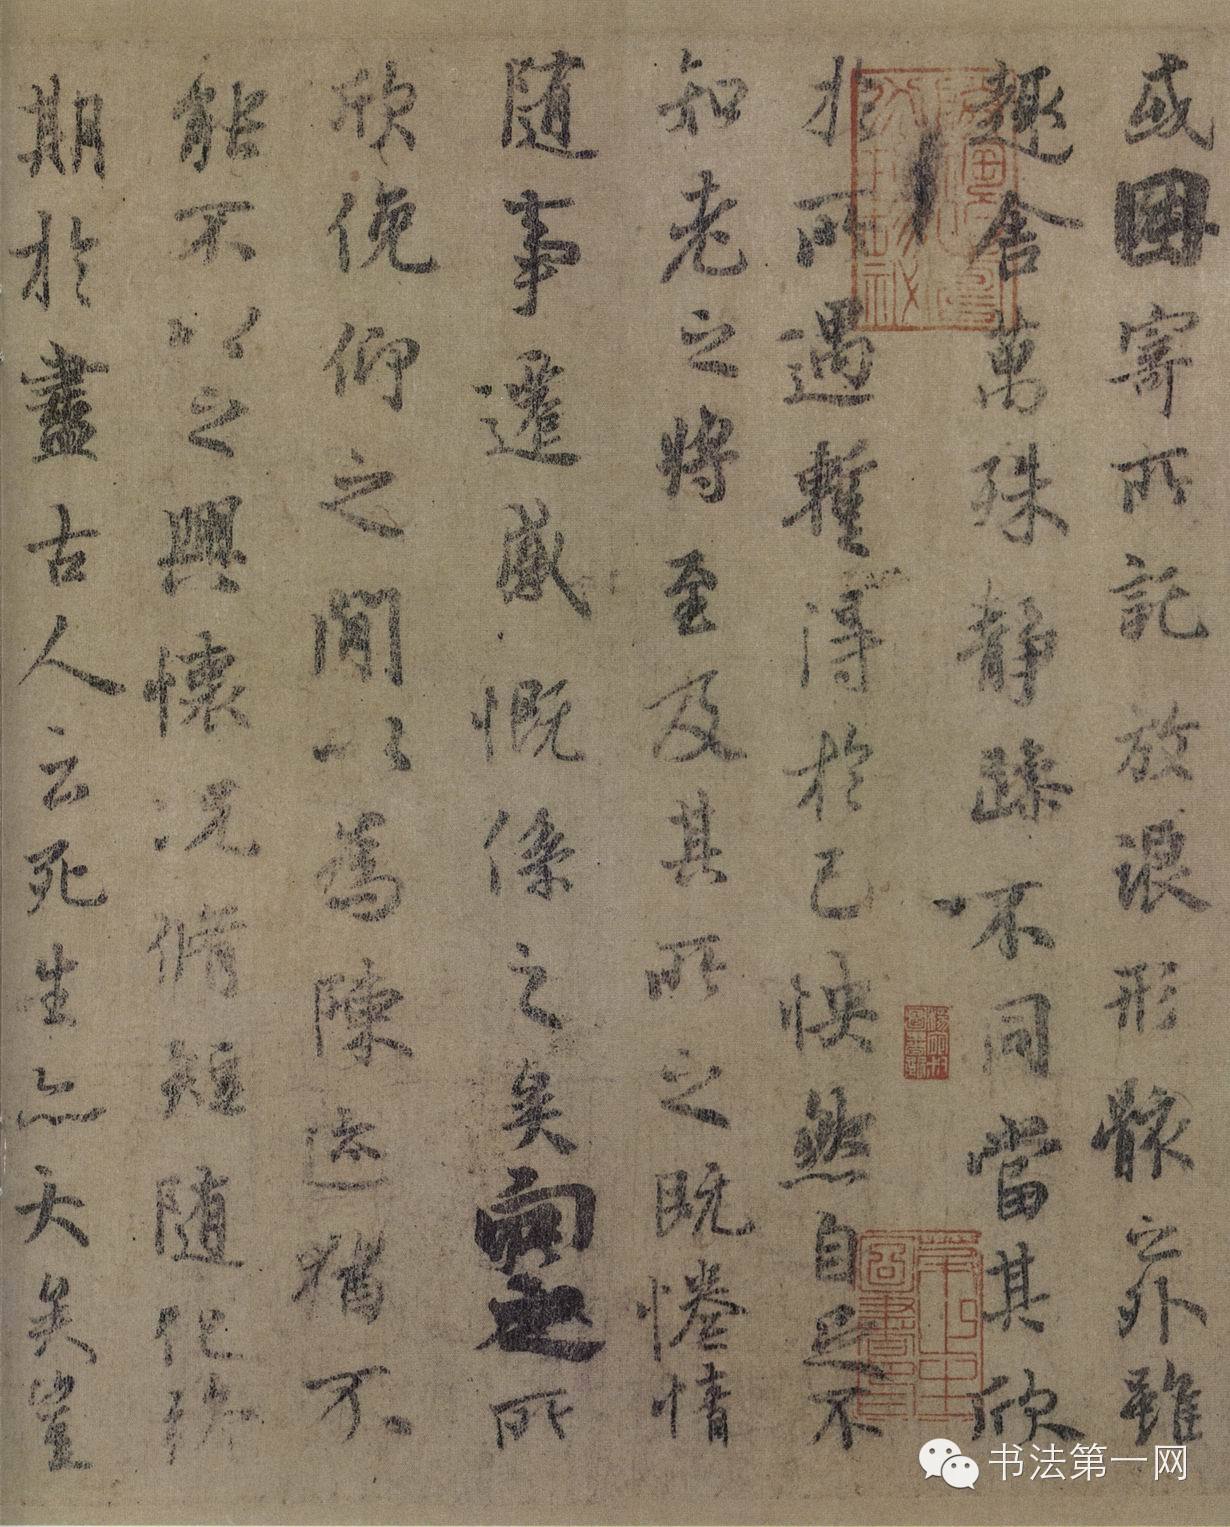 或因寄所託放浪形骸之外雖
趣舍萬殊靜躁不同當其欣
於所遇暫得於己怏然自足不
知老之將至及其所之既惓情
随事遷感慨係之矣向之所
欣俛仰之閒以為陳迹猶不
能不以之興懷况脩短随化終
期於盡古人云死生亦大矣豈
书法第一网